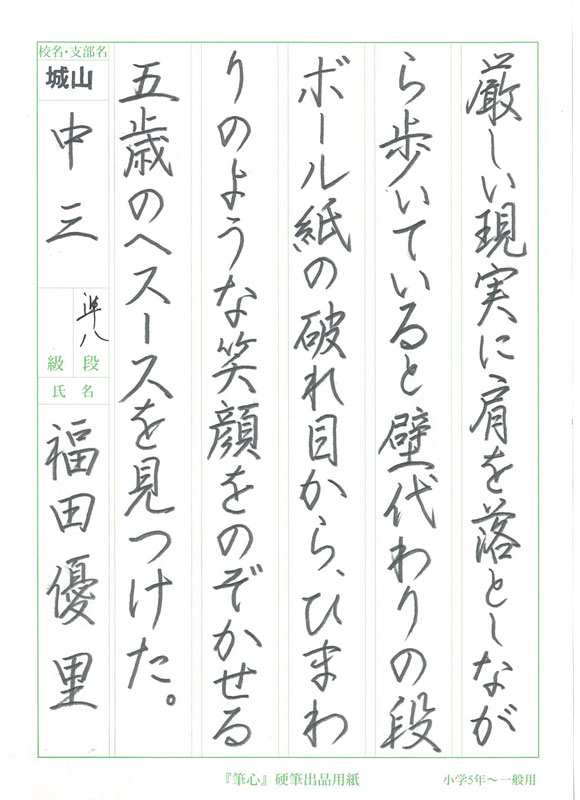 厳しい現実に肩を落としなが
ら歩いていると壁代わりの段
ボール紙の破れ目から、ひまわ
りのような笑顔をのぞかせる
五歳のヘスースを見つけた。
校名・支部名
城山
中三
準八
段
級
氏名
福田優里
『筆心』硬筆出品用紙
小学5年〜一般用